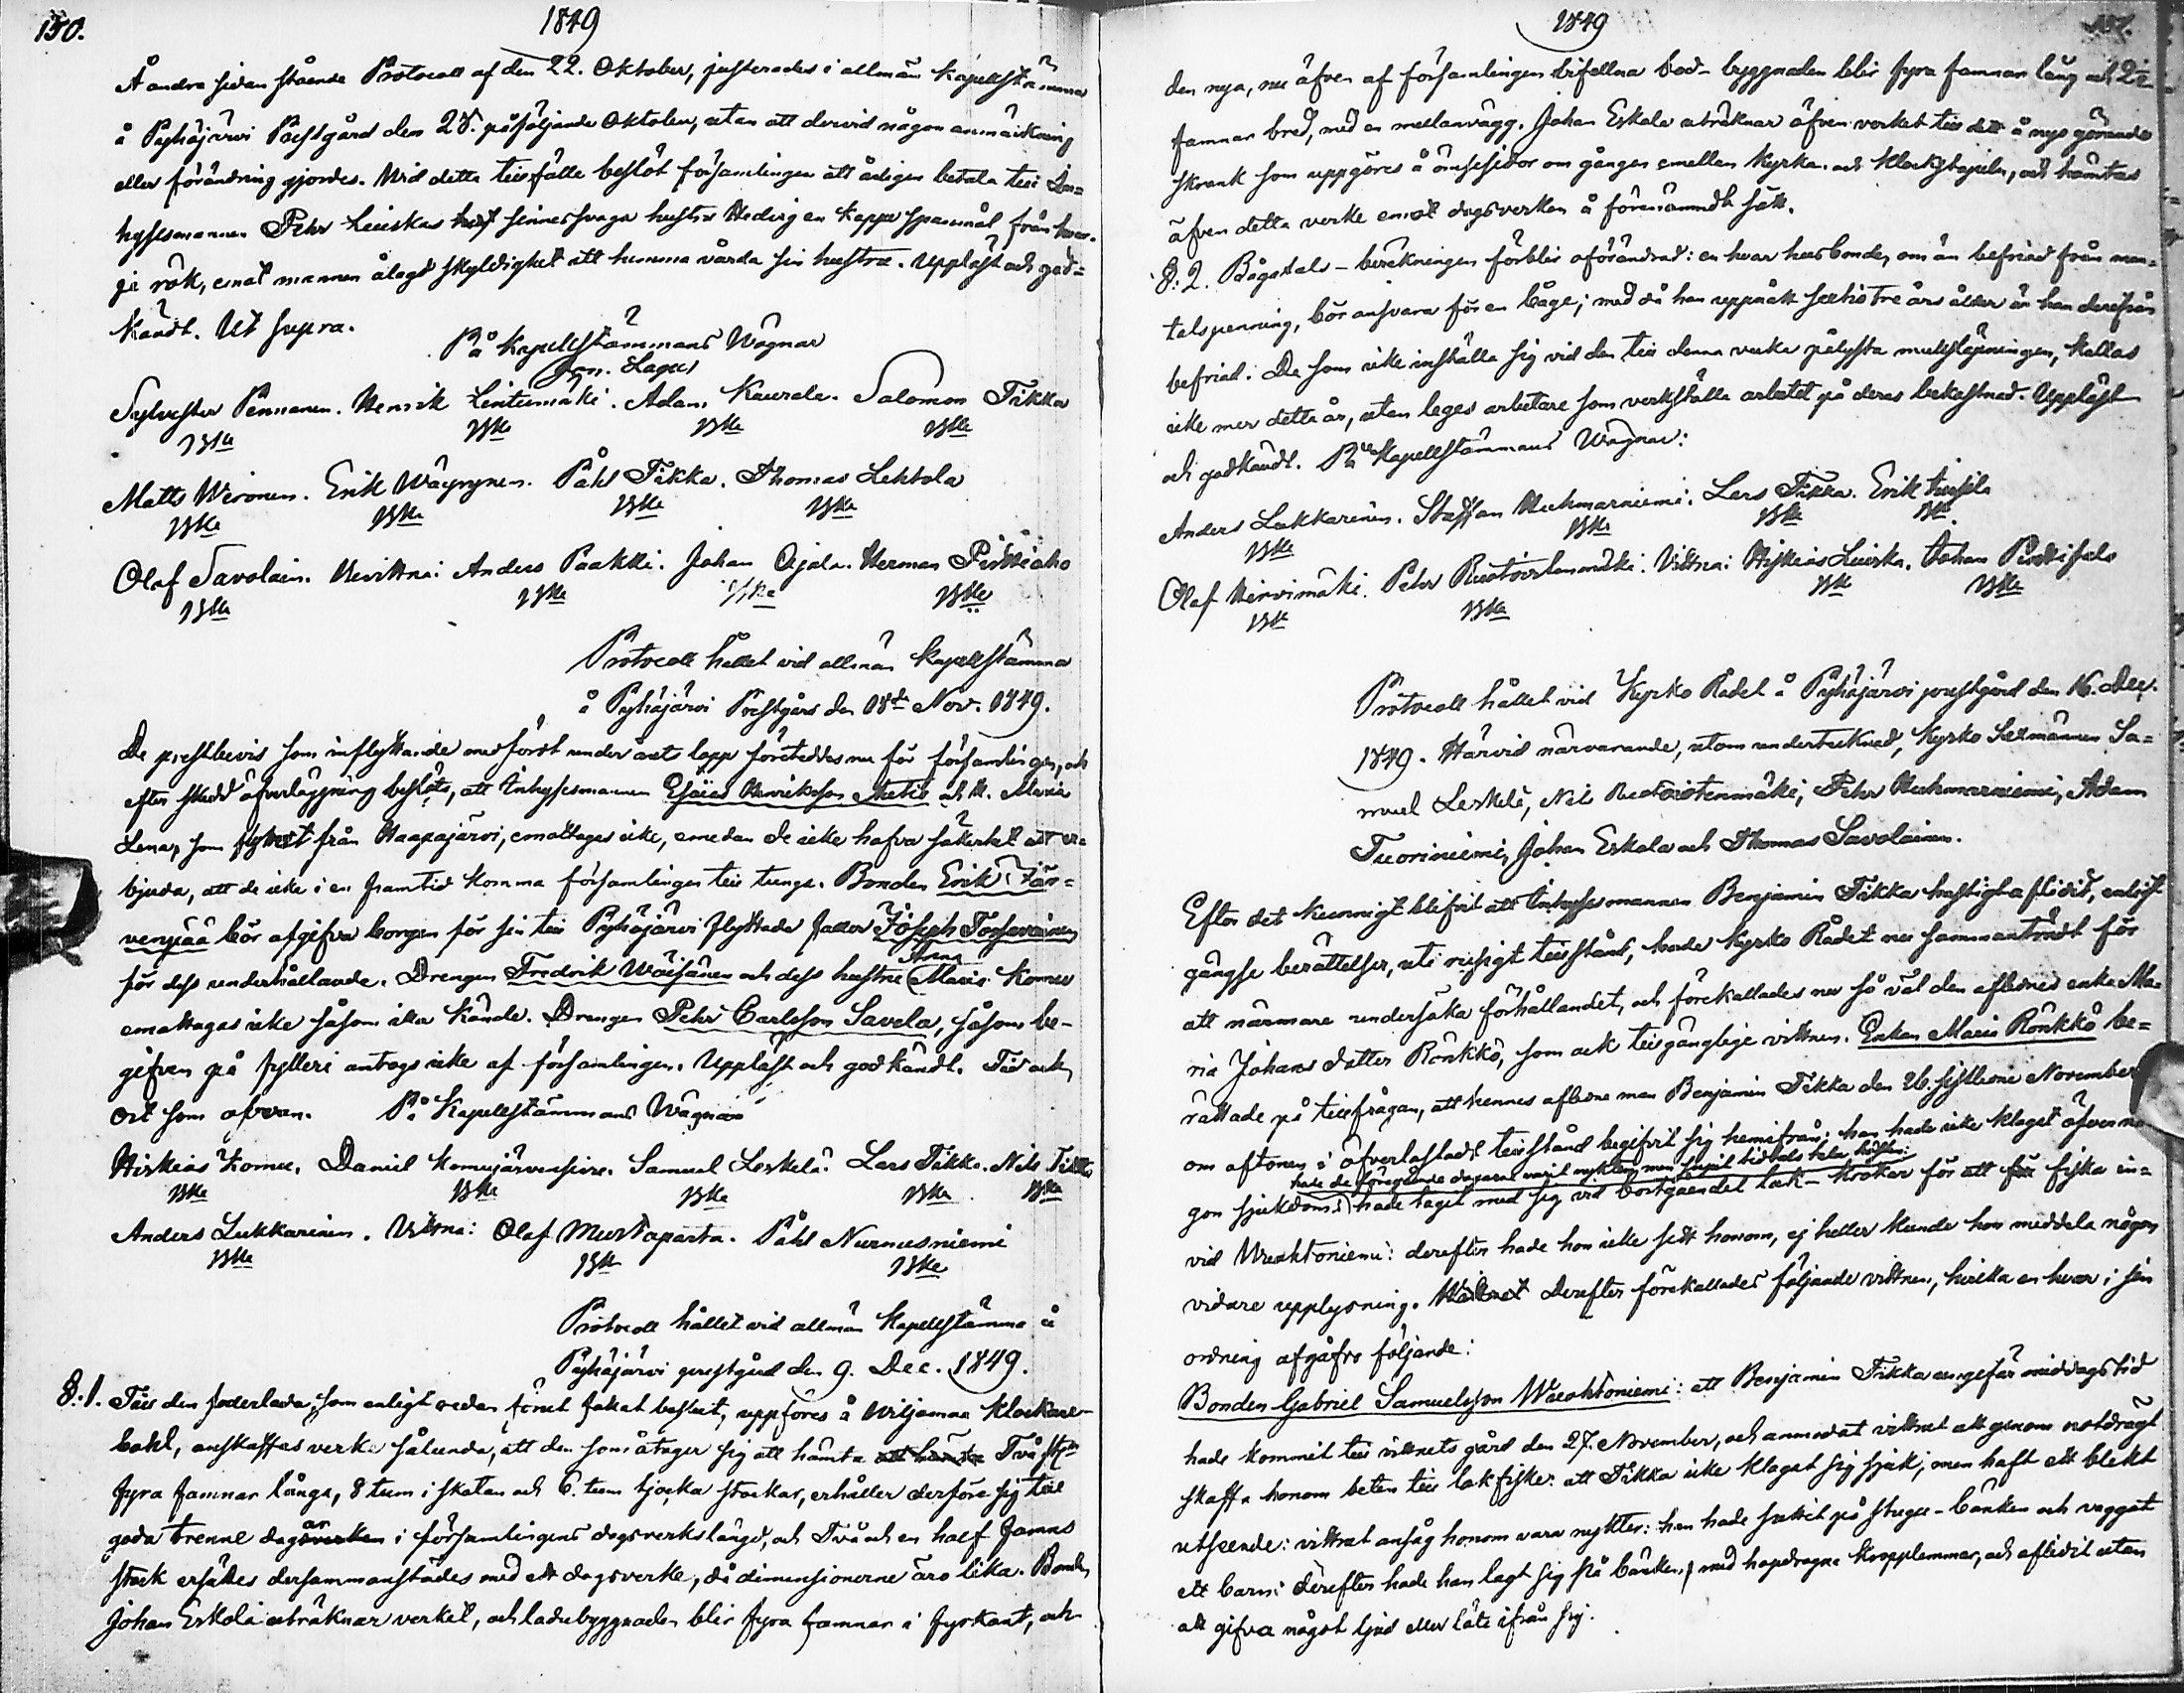 150.
1849
Å andra sidan stående Protocoll af den 22. Oktober, justerades i allmän Kapellstämma
å Pyhäjärvi Prestgård den 28. påföljande Oktober, utan att dervid någon anmärkning
eller förändring gjordes. Wid detta tillfälle beslöt församlingen att årligen betala till In=
hysesmannen Pehr Leiskas sinnessvaga hustru Hedvig en kappe spannmål från hvar-
je rök, emot mannen ålagd skyldighet att hemma vårda sin hustru. Uppläst och god=
kändt. Ut supra.
På Kapellstämmans Wägnar
Jon. Lagus
Sylvester Pennanen. Henrik Lintumäki. Adam Kaurala. Salomon Tikka
Matts Weronen. Erik Wäyrynen. Påhl Tikka. Thomas Lehtola
Olof Savolain. Anders Paakki. Johan Ojala. Herman Pirttiaho
Protocoll hållet vid allmän Kapellstämma
å Pyhäjärvi Prestgård den 18de Nov. 1849.
De prestbevis som inflyttande medfört under årets lopp företeddes nu för församlingen, och
efter skedd öfverläggning beslöts, att Inhysesmannen Esaias Henriksson Metis och h. Maria
Lena, som flyttat från Haapajärvi, emottages icke, emedan de icke hafva säkerhet att er=
bjuda, att de icke i en framtid komma församlingen till tunga. Bonden Erik Jär=
venpää bör afgifva borgen för sin till Pyhäjärvi flyttade fader Joseph Tossavainen
för dess underhållande. Drengen Fredrik Wäisänen och dess hustru Anna Maria Komu
emottagas icke såsom illa kände. Drengen Pehr Carlsson Savela, såsom be-
gifven på fylleri antogs icke af församlingen. Uppläst och godkändt. Tid och
ort som ofvan. På Kapellstämmans Wägnar
Hiskias Komu. Daniel Komujärvensivu. Samuel Leskelä. Lars Tikka. Nils Tikka
Anders Lukkarinen. Vittna: Olof Murtoparta. Påhl Nurmesniemi
Protocoll hållet vid allmän Kapellstämma å
Pyhäjärvi prestgård den 9. Dec. 1849.
§. 1. Till den foderlada, som enligt redan förut fattat beslut, uppföres å Wiljamaa Klockare-
bohl, anskaffas verke sålunda, att den som åtager sig att hämta att hämta Två st.
fyra famnar långa, 8 tum i skatan och 6. tum tjocka stockar, erhåller derföre sig till
goda trenne dagar i församlingens dagsverkslängd, och Två och en half famns
stock ersättes dersammanstädes med ett dagsverke, då dimensionerne äro lika. Bonden
Johan Eskola uträknar verket, och ladubyggnaden blir fyra famnar i fyrkant, och
1849
den nya, nu äfven af församlingen bifallna bod-byggnaden blir fyra famnar lång och 2½
famnar bred, med en mellanvägg. Johan Eskola uträknar äfven verket till det å nyo görande
skrank som uppgöres å ömsesidor om gången emellan Kyrkan och Klockstapeln, och hämtas
äfven detta verke emot dagsverken å förenämndt sätt.
§: 2. Bågatals-beräkningen förblir oförändrad: en hvar husbonde, om än befriad från man=
talspenning, bör ansvara för en båge; med då han uppnått sextiotre års ålder är han derifrån
befriad. De som icke inställa sig vid den till denna vecka pålysta, kallas
icke mer detta år, utan leges arbetare som verkställa arbetet på deras bekostnad. Uppläst
och godkändt. På Kapellstämmans Wägnar:
Anders Lukkarinen. Staffan Muhmarniemi. Lars Tikka. Erik
Olof Hirvimäki. Pehr Ruotoistenmäki. Vittna: Hiskias Leiska. Johan
Protocoll hållet vid Kyrko Rådet å Pyhäjärvi prestgård den 16. Dec.
1849. Härvid närvarande, utom undertecknad, Kyrko Sexmännen Sa=
muel Leskelä, Nils Ruotoistenmäki, Pehr Muhmarniemi, Adam
Tuoriniemi, Johan Eskola och Thomas Savolainen.
Efter det kunnigt blifvit att Inhysesmannen Benjamin Tikka hastigt aflidit, enligt
gängse berättelser, uti rusigt tillstånd, hade Kyrko Rådet nu sammanträdt för
att närmare undersöka förhållandet, och förekallades nu så väl den aflidnes enka Ma=
ria Johans dotter Rönkkö, som ock tillgänglige vittnen. Enkan Maria Rönkkö be=
rättade på tillfrågan, att hennes aflidne man Benjamin Tikka den 26. sistlidne November
om aftonen i öfverlastadt tillstånd begifvit sig hemifrån: han hade icke klagat öfver nå
hade de föregående dagarne varit nykter, men supit tidtals hela hösten:
gon sjukdom: hade taget med sig vid bortgåendet lak-krokar för att fiska in=
vid Wuohtoniemi: derefter hade hon icke sett honom, ej heller kunde hon meddela någon
vidare upplysning. Derefter förekallades följande vittnen, hvilka en hvar i sin
ordning afgåfvo följande:
Bonden Gabriel Samuelsson Wuohtoniemi: att Benjamin Tikka ungefär middagstid
hade kommit till vittnets gård den 27. November, och anmodat vittnet att genom notdrägt
skaffa honom beten till lakfiske: att Tikka icke klagat sig sjuk; men haft ett blekt
utseende: vittnet ansåg honom vara nykter: han hade suttit på stugu-bänken och vaggat
ett barn: derefter hade han lagt sig på bänken, med hopdragna kropplemmar, och aflidit utan
att gifva något ljud eller läte ifrån sig.